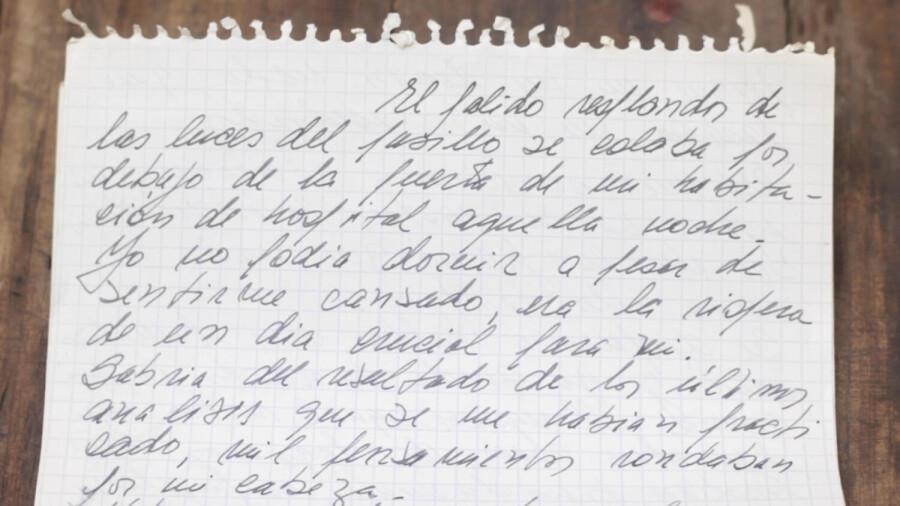 El palido resplandor de
las luces del pasillo se colaba por
debajo de la puerta de mi habita-
ción de hospital aquella noche.
Yo no podia dormir a pesar de
sentirme cansado, era la vispera
de un dia crucial para mi.
Sabria del resultado de los últimos
analisis que se me habian practi
cado, mil pensamientos rondaban
por mi cabeza.